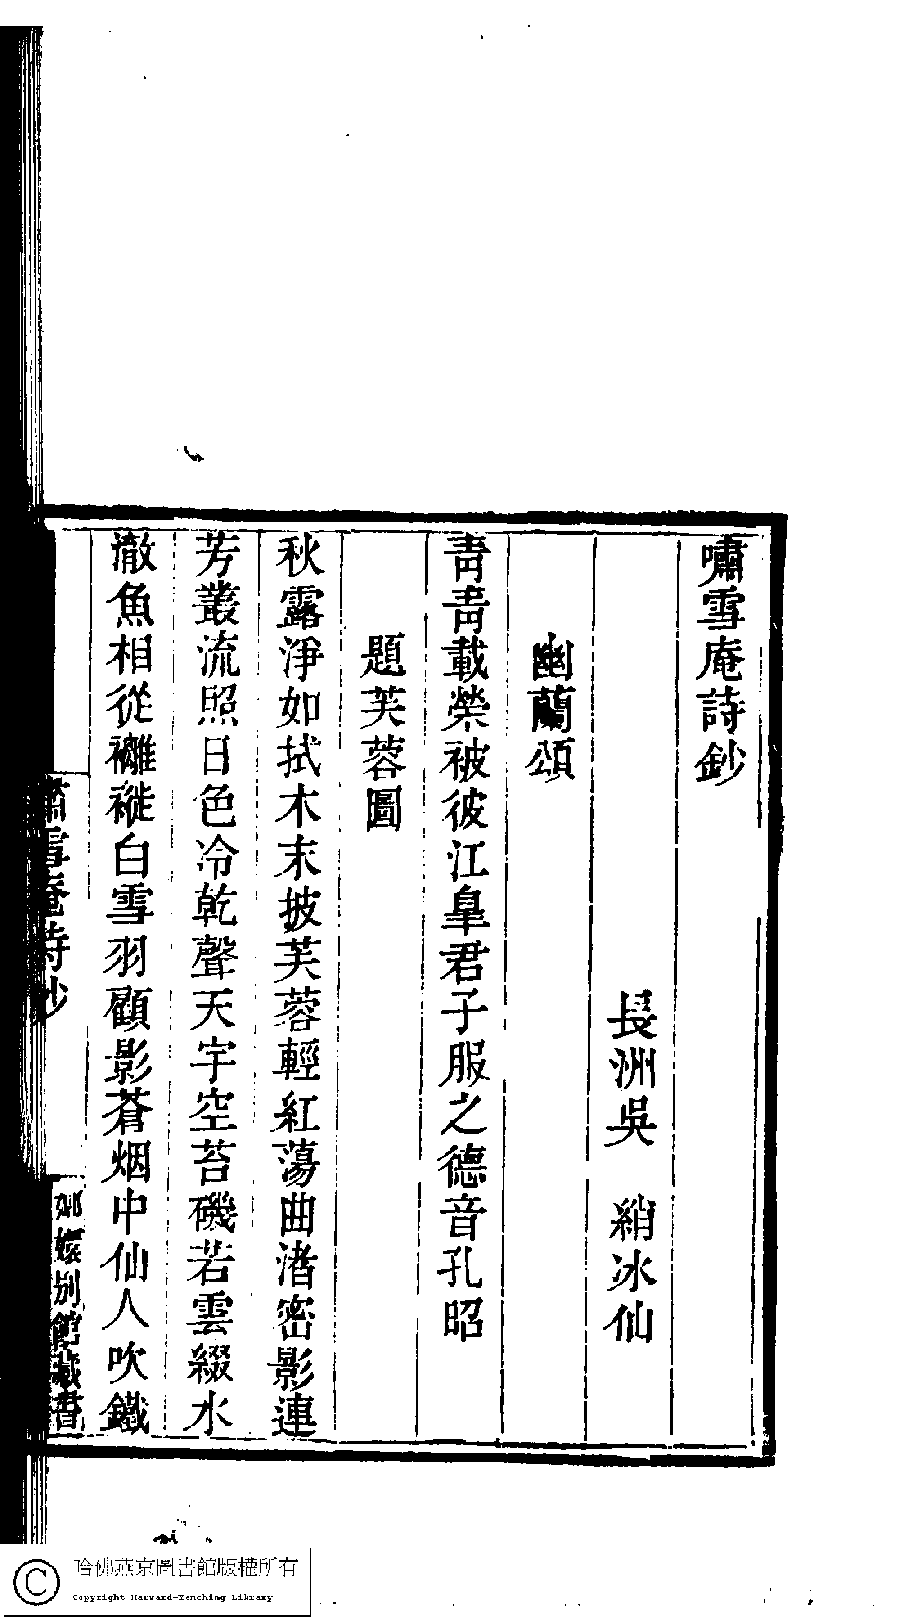 嘯雪庵詩鈔
長洲吳　綃冰仙
幽蘭頌
靑靑載榮被彼江臯君子服之德音孔昭
題芙蓉圖
秋露淨如拭木末披芙蓉輕紅蕩曲渚密影連
芳叢流照日色冷乾聲天宇空苔磯若雲綴水
澈魚相從褵褷白雪羽顧影蒼烟中仙人吹鐵
嘯雪庵詩鈔
嫏嬛別館藏書
哈佛燕京圖書館版權所有
Copyright Harvard-Yenching Library